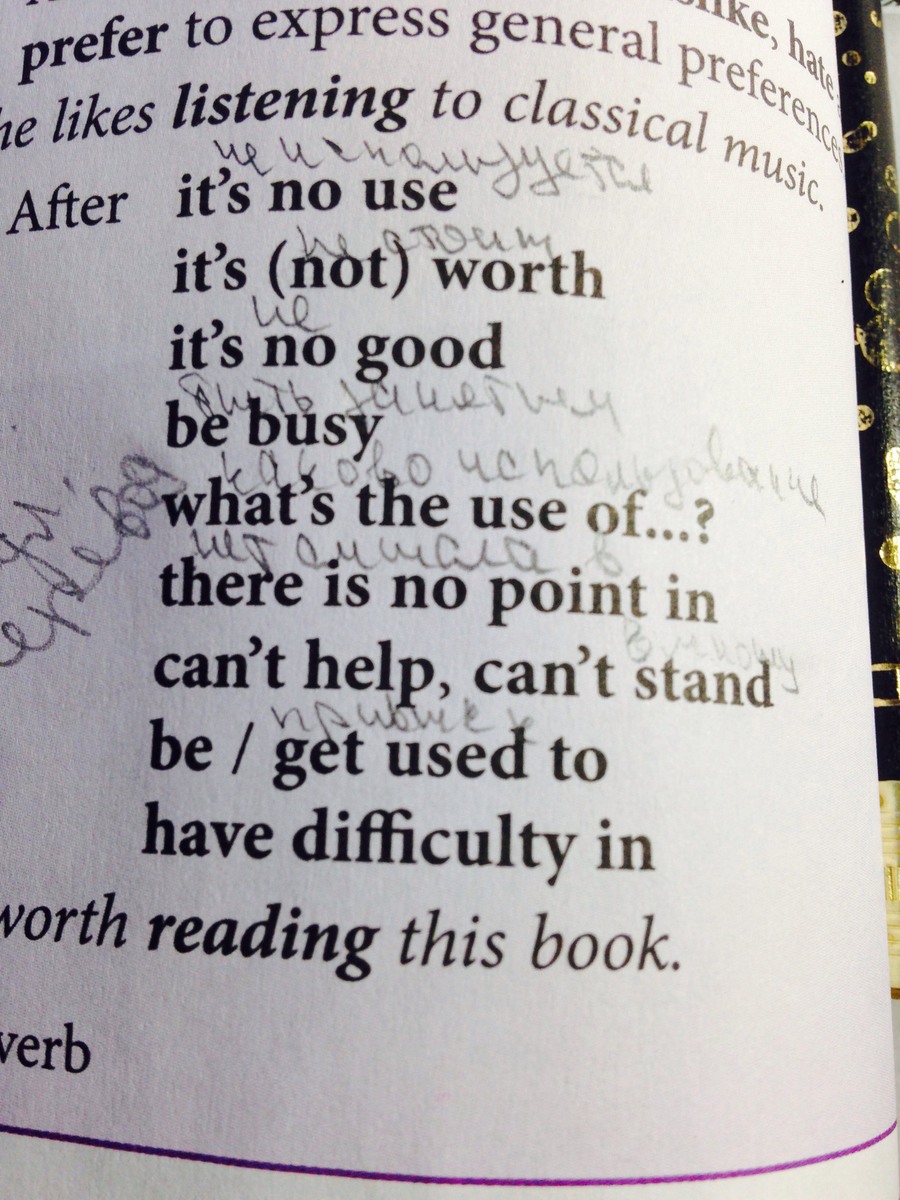 slike, hate
prefer to express general preference
he likes listening to classical music.
не используется
After it's no use
не стоит
it's (not) worth
не
it's no good
быть занятым
be busy
каково использование
what's the use of...?
нет смысла в
there is no point in
can't help, can't stand
привык к
be / get used to
have difficulty in
worth reading this book.
verb